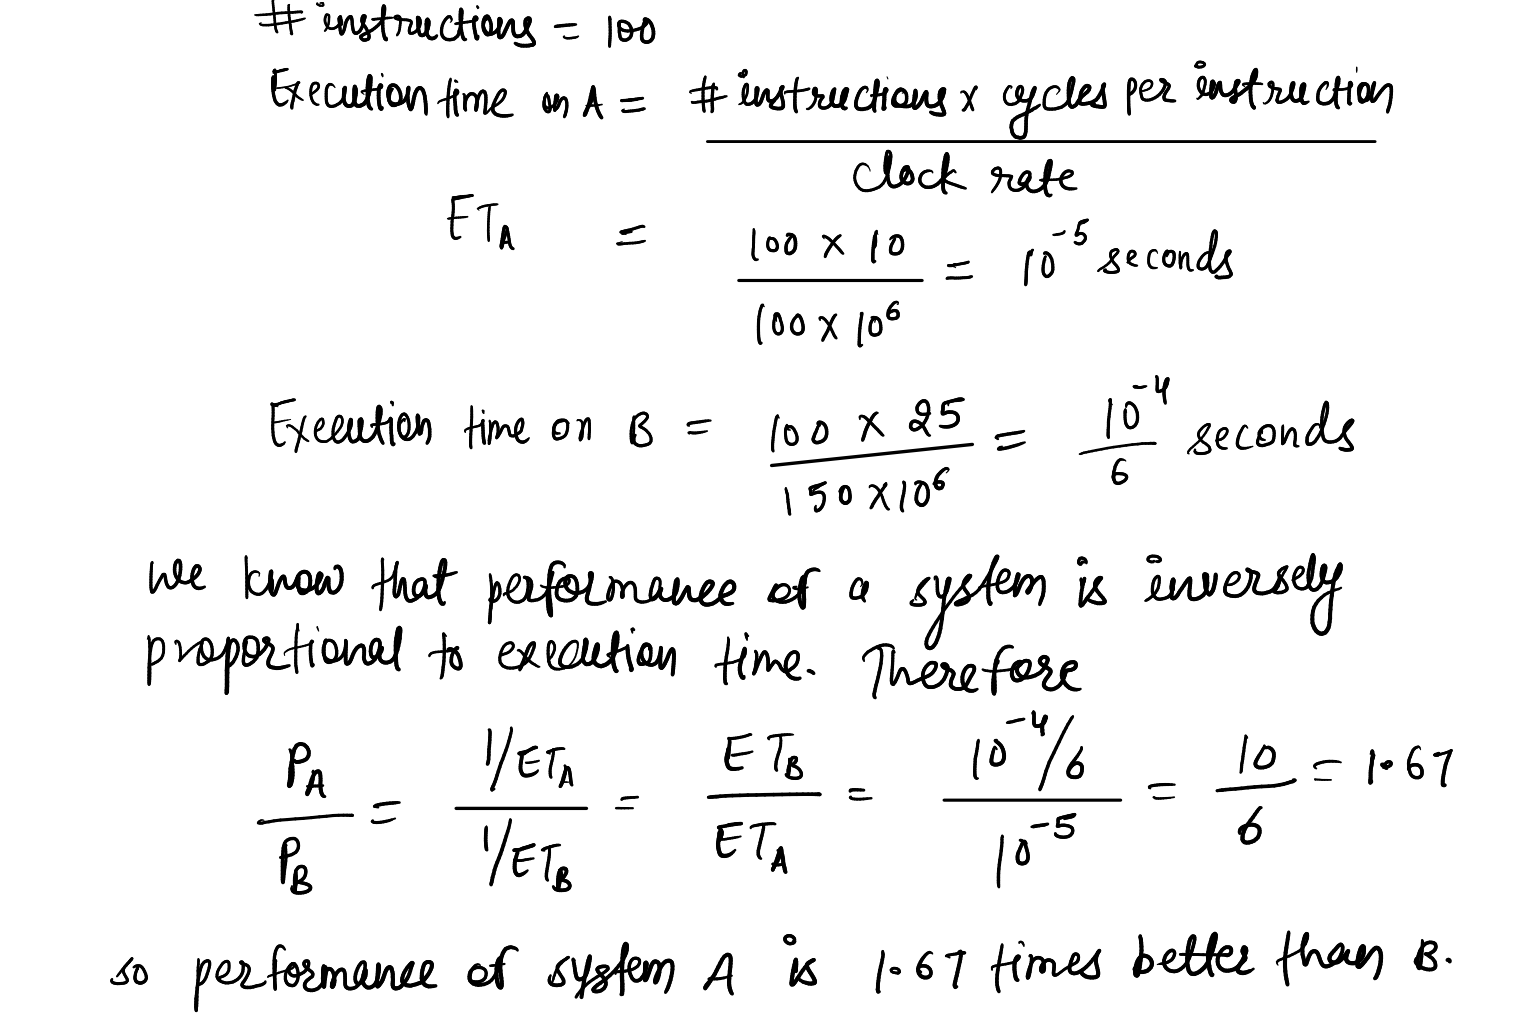 # instructions = 100
Execution time on A = # instructions x cycles per instruction / clock rate
ET_A = 100 x 10 / 100 x 10^6 = 10^-5 seconds
Execution time on B = 100 x 25 / 150 x 10^6 = 10^-4 / 6 seconds
we know that performance of a system is inversely
proportional to execution time. Therefore
P_A / P_B = 1/ET_A / 1/ET_B = ET_B / ET_A = 10^-4/6 / 10^-5 = 10 / 6 = 1.67
so performance of system A is 1.67 times better than B.